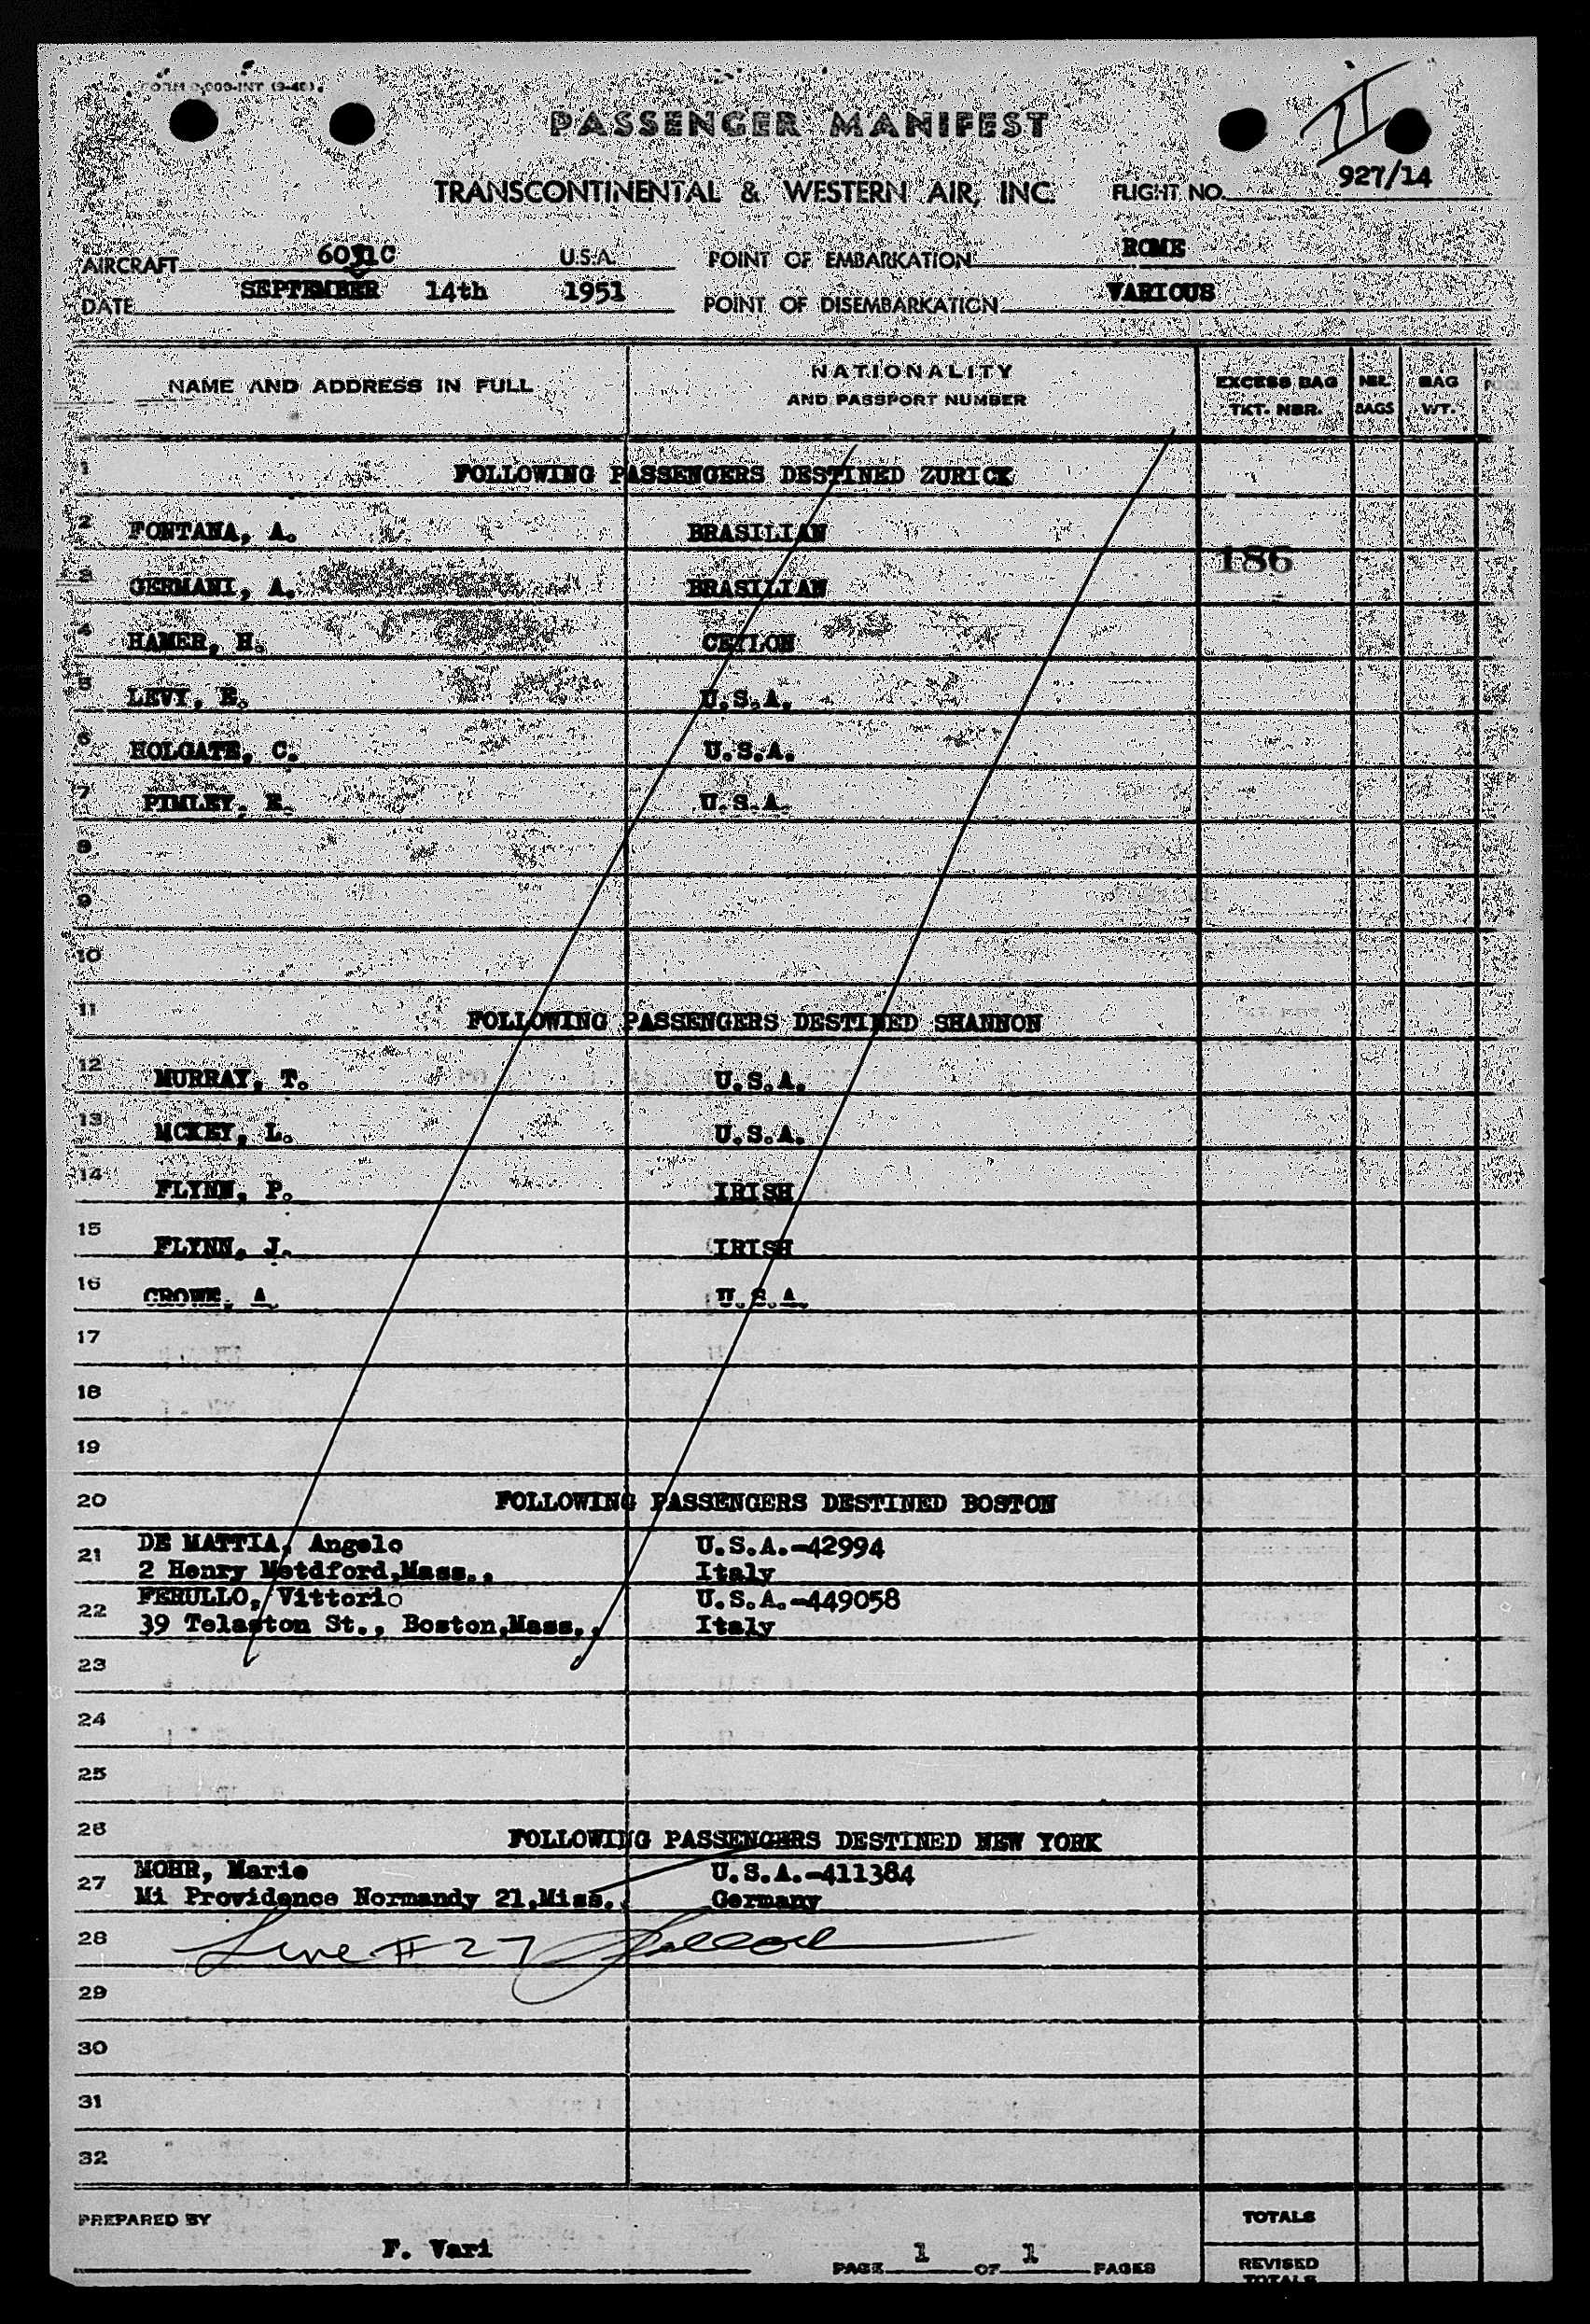 FORM 0,000-INT (9-46)
PASSENGER MANIFEST
TRANSCONTINENTAL & WESTERN AIR, INC. FLIGHT NO. 927/14
AIRCRAFT U.S.A. POINT OF EMBARKATION ROME
DATE SEPTEMBER 14th 1951 POINT OF DISEMBARKATION VARIOUS
NAME AND ADDRESS IN FULL NATIONALITY AND PASSPORT NUMBER EXCESS BAG TKT. NBR. NBR. BAGS BAG WT.
1 FOLLOWING PASSENGERS DESTINED ZURICK
2 FONTANA, A. BRASILIAN
186
3 GERMANI, A. BRASILIAN
4 HAMER, H. CEYLON
5 LEVY, E. U.S.A.
6 HOLGATE, C. U.S.A.
7 PIMLEY, E. U.S.A.
8
9
10
11 FOLLOWING PASSENGERS DESTINED SHANNON
12 MURRAY, T. U.S.A.
13 MCKEY, L. U.S.A.
14 FLYNN, P. IRISH
15 FLYNN, J. IRISH
16 CROWE, A. U.S.A.
17
18
19
20 FOLLOWING PASSENGERS DESTINED BOSTON
21 DE MATTIA, Angelo U.S.A.-42994
2 Henry Metdford,Mass., Italy
22 FERULLO, Vittorio U.S.A.-449058
39 Telaston St., Boston,Mass., Italy
23
24
25
26 FOLLOWING PASSENGERS DESTINED NEW YORK
27 MOHR, Marie U.S.A.-411384
Mi Providence Normandy 21,Miss., Germany
28 Line # 27
29
30
31
32
PREPARED BY F. Vari TOTALS
PAGE 1 OF 1 PAGES REVISED TOTALS